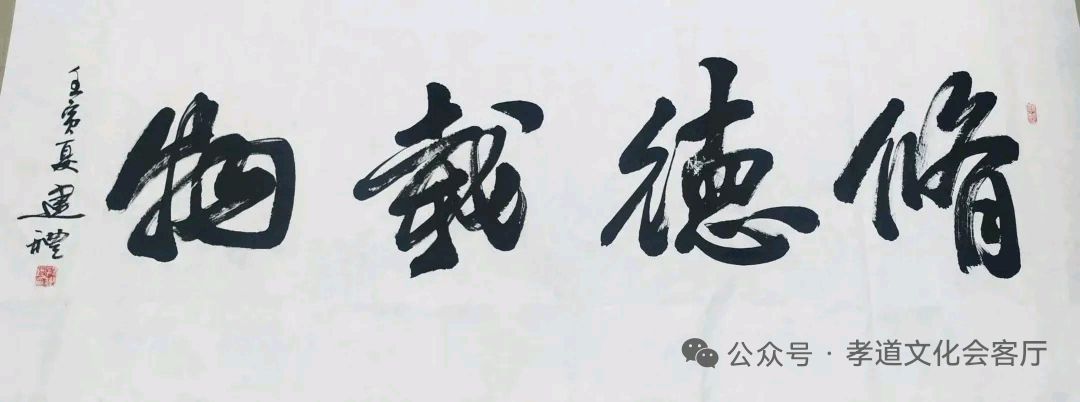 脩德載物
壬寅夏建禮
公众号·孝道文化会客厅